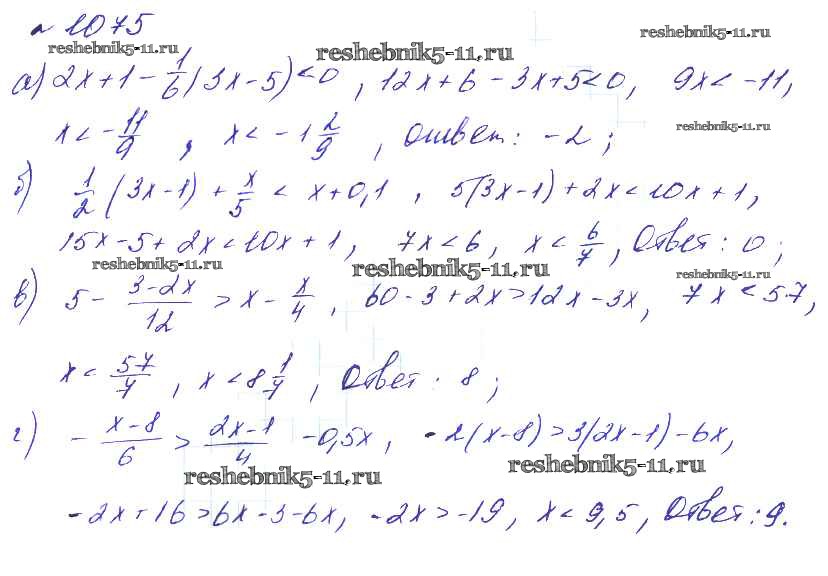 № 1075
reshebnik5-11.ru reshebnik5-11.ru reshebnik5-11.ru
а) 2x + 1 - 1/6 (3x - 5) < 0, 12x + 6 - 3x + 5 < 0, 9x < -11,
x < -11/9, x < -1 2/9, ответ: -2;
reshebnik5-11.ru
б) 1/2 (3x - 1) + x/5 < x + 0,1, 5(3x - 1) + 2x < 10x + 1,
15x - 5 + 2x < 10x + 1, 7x < 6, x < 6/7, Ответ: 0;
reshebnik5-11.ru reshebnik5-11.ru reshebnik5-11.ru
в) 5 - (3 - 2x)/12 > x - x/4, 60 - 3 + 2x > 12x - 3x, 7x < 57,
x < 57/7, x < 8 1/7, Ответ: 8;
г) - (x - 8)/6 > (2x - 1)/4 - 0,5x, -2(x - 8) > 3(2x - 1) - 6x,
reshebnik5-11.ru reshebnik5-11.ru
-2x + 16 > 6x - 3 - 6x, -2x > -19, x < 9,5, Ответ: 9.